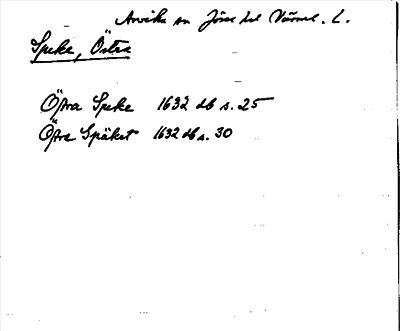 Arvika sn Jösse hd Värml. L.
Speke, Östra
Östra Speke 1632 db s. 25
Östra Späket 1632 db s. 30